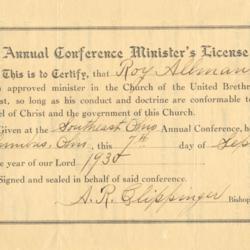 Annual Conference Minister's License
This is to Certify, that Roy Allman
approved minister in the Church of the United Brethre
st, so long as his conduct and doctrine are conformable to
el of Christ and the government of this Church.
Given at the Southeast Ohio Annual Conference, he
umbus, Ohio, this 7th day of Sep
e year of our Lord 1930
Signed and sealed in behalf of said conference.
A. R. Clippinger
Bishop